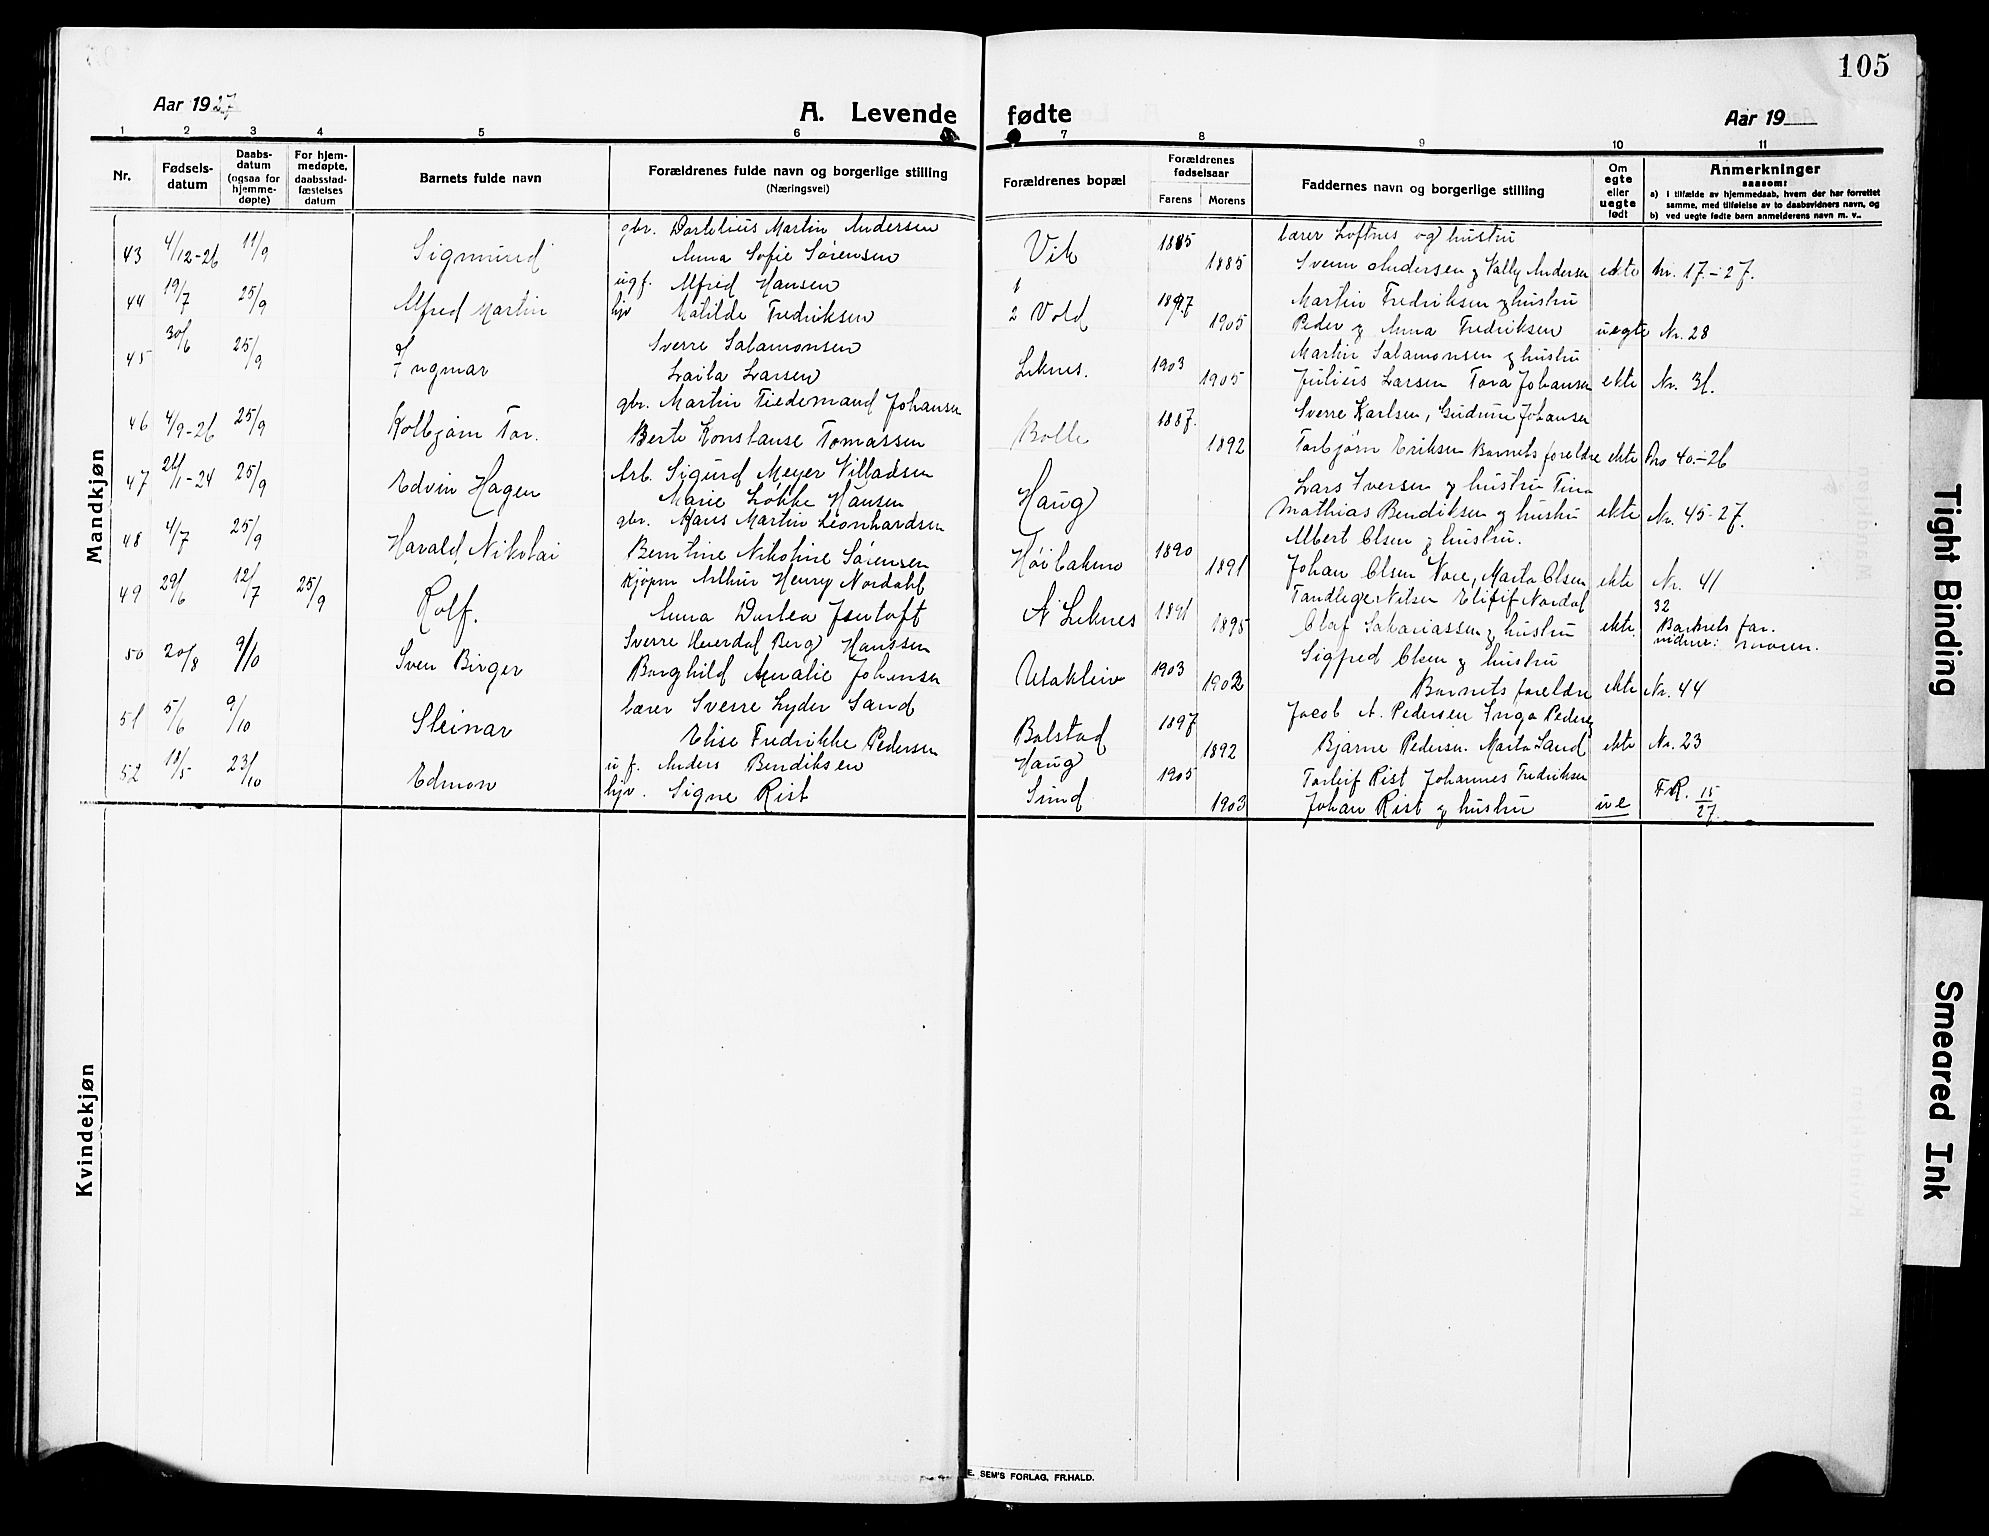 105
Aar 1927
A. Levende fødte
Aar 19
1 2 3 4 5 6 7 8 9 10 11
Nr.
Fødsels-
datum
Daabs-
datum
(ogsaa for
hjemme-
døpte)
For hjem-
medøpte,
daabsstad-
fæstelses
datum
Barnets fulde navn
Forældrenes fulde navn og borgerlige stilling
(Næringsvei)
Forældrenes bopæl
Forældrenes
fødselsaar
Farens Morens
Faddernes navn og borgerlige stilling
Om
egte
eller
uegte
født
Anmerkninger
saasom:
a) i tilfælde av hjemmedaab, hvem der har forrettet
samme, med tilføielse av to daabsvidners navn, og
b) ved uegte fødte barn anmelderens navn m. v..
Mandkjøn
gbr. Dortelius Martin Andersen lærer Loftnes og hustru
43 4/12-26 11/9 Sigmund Anna Sofie Sørensen Vik 1885 1885 Svenn Andersen g Vally Andersen ekte Nr. 17.-27.
ugf. Alfred Hansen 1 Martin Fredriksen g hustru
44 19/7 25/9 Alfred Martin hjv Matilde Fredriksen 2 Vold 1897 1905 Peder g Anna Fredriksen uegte Nr. 28
Sverre Salamonsen Martin Salamonsen g hustru
45 30/6 25/9 Ingmar Laila Larsen Leknes. 1903 1905 Julius Larsen Tora Johansen ekte Nr. 31.
gbr. Martin Tiedemand Johansen Sverre Karlsen, Gudrun Johansen
46 4/9-26 25/9 Kolbjørn Tor. Berte Konstanse Tomassen Bolle 1887. 1892 Torbjørn Eriksen Barnets foreldre ekte No 40.-26
Arb. Sigurd Meyer Villadsen Lars Iversen g hustru Tina
47 21/1-24 25/9 Edvin Hagen Marie Løkke Hansen Haug Mathias Bendiksen g hustru ekte Nr. 45-27.
gbr. Hans Martin Leonhardsen Albert Olsen g hustru.
48 4/7 25/9 Harald Nikolai Berntine Nikoline Sørensen 1890 1891 Johan Olsen Marta Olsen ekte Nr. 41
Kjøpm Arthur Henry Nordahl Tandlege Nilsen Nordal
49 29/6 12/7 25/9 Rolf. Anna Dortea Jentoft N Leknes 1891 1895 Olaf Sakariassen g hustru ekte. 32 Barnets far.
vidne: moren.
Sverre Heierdal Berg Hanssen Sigfred Olsen g hustru
50 20/8 9/10 Sven Birger Borghild Amalie Johansen Utakleiv 1903 1902 Barnets foreldre ekte Nr. 44
lærer Sverre Lyder Sand Jacob A. Pedersen Inga Pedersen
51 5/6 9/10 Steinar Elise Fredrikke Pedersen Bolstad 1897 1892 Bjarne Pedersen. Marta Sand ekte Nr. 23
u. f. Anders Bendiksen Haug Torleif Rist Johannes Fredriksen
52 18/5 23/10 Edmon hjv. Signe Rist Sund 1905 1903 Johan Rist g hustru ue F.R. 15/27.
Kvindekjøn
E. SEM'S FORLAG, FR.HALD.
Tight Binding
Smeared Ink